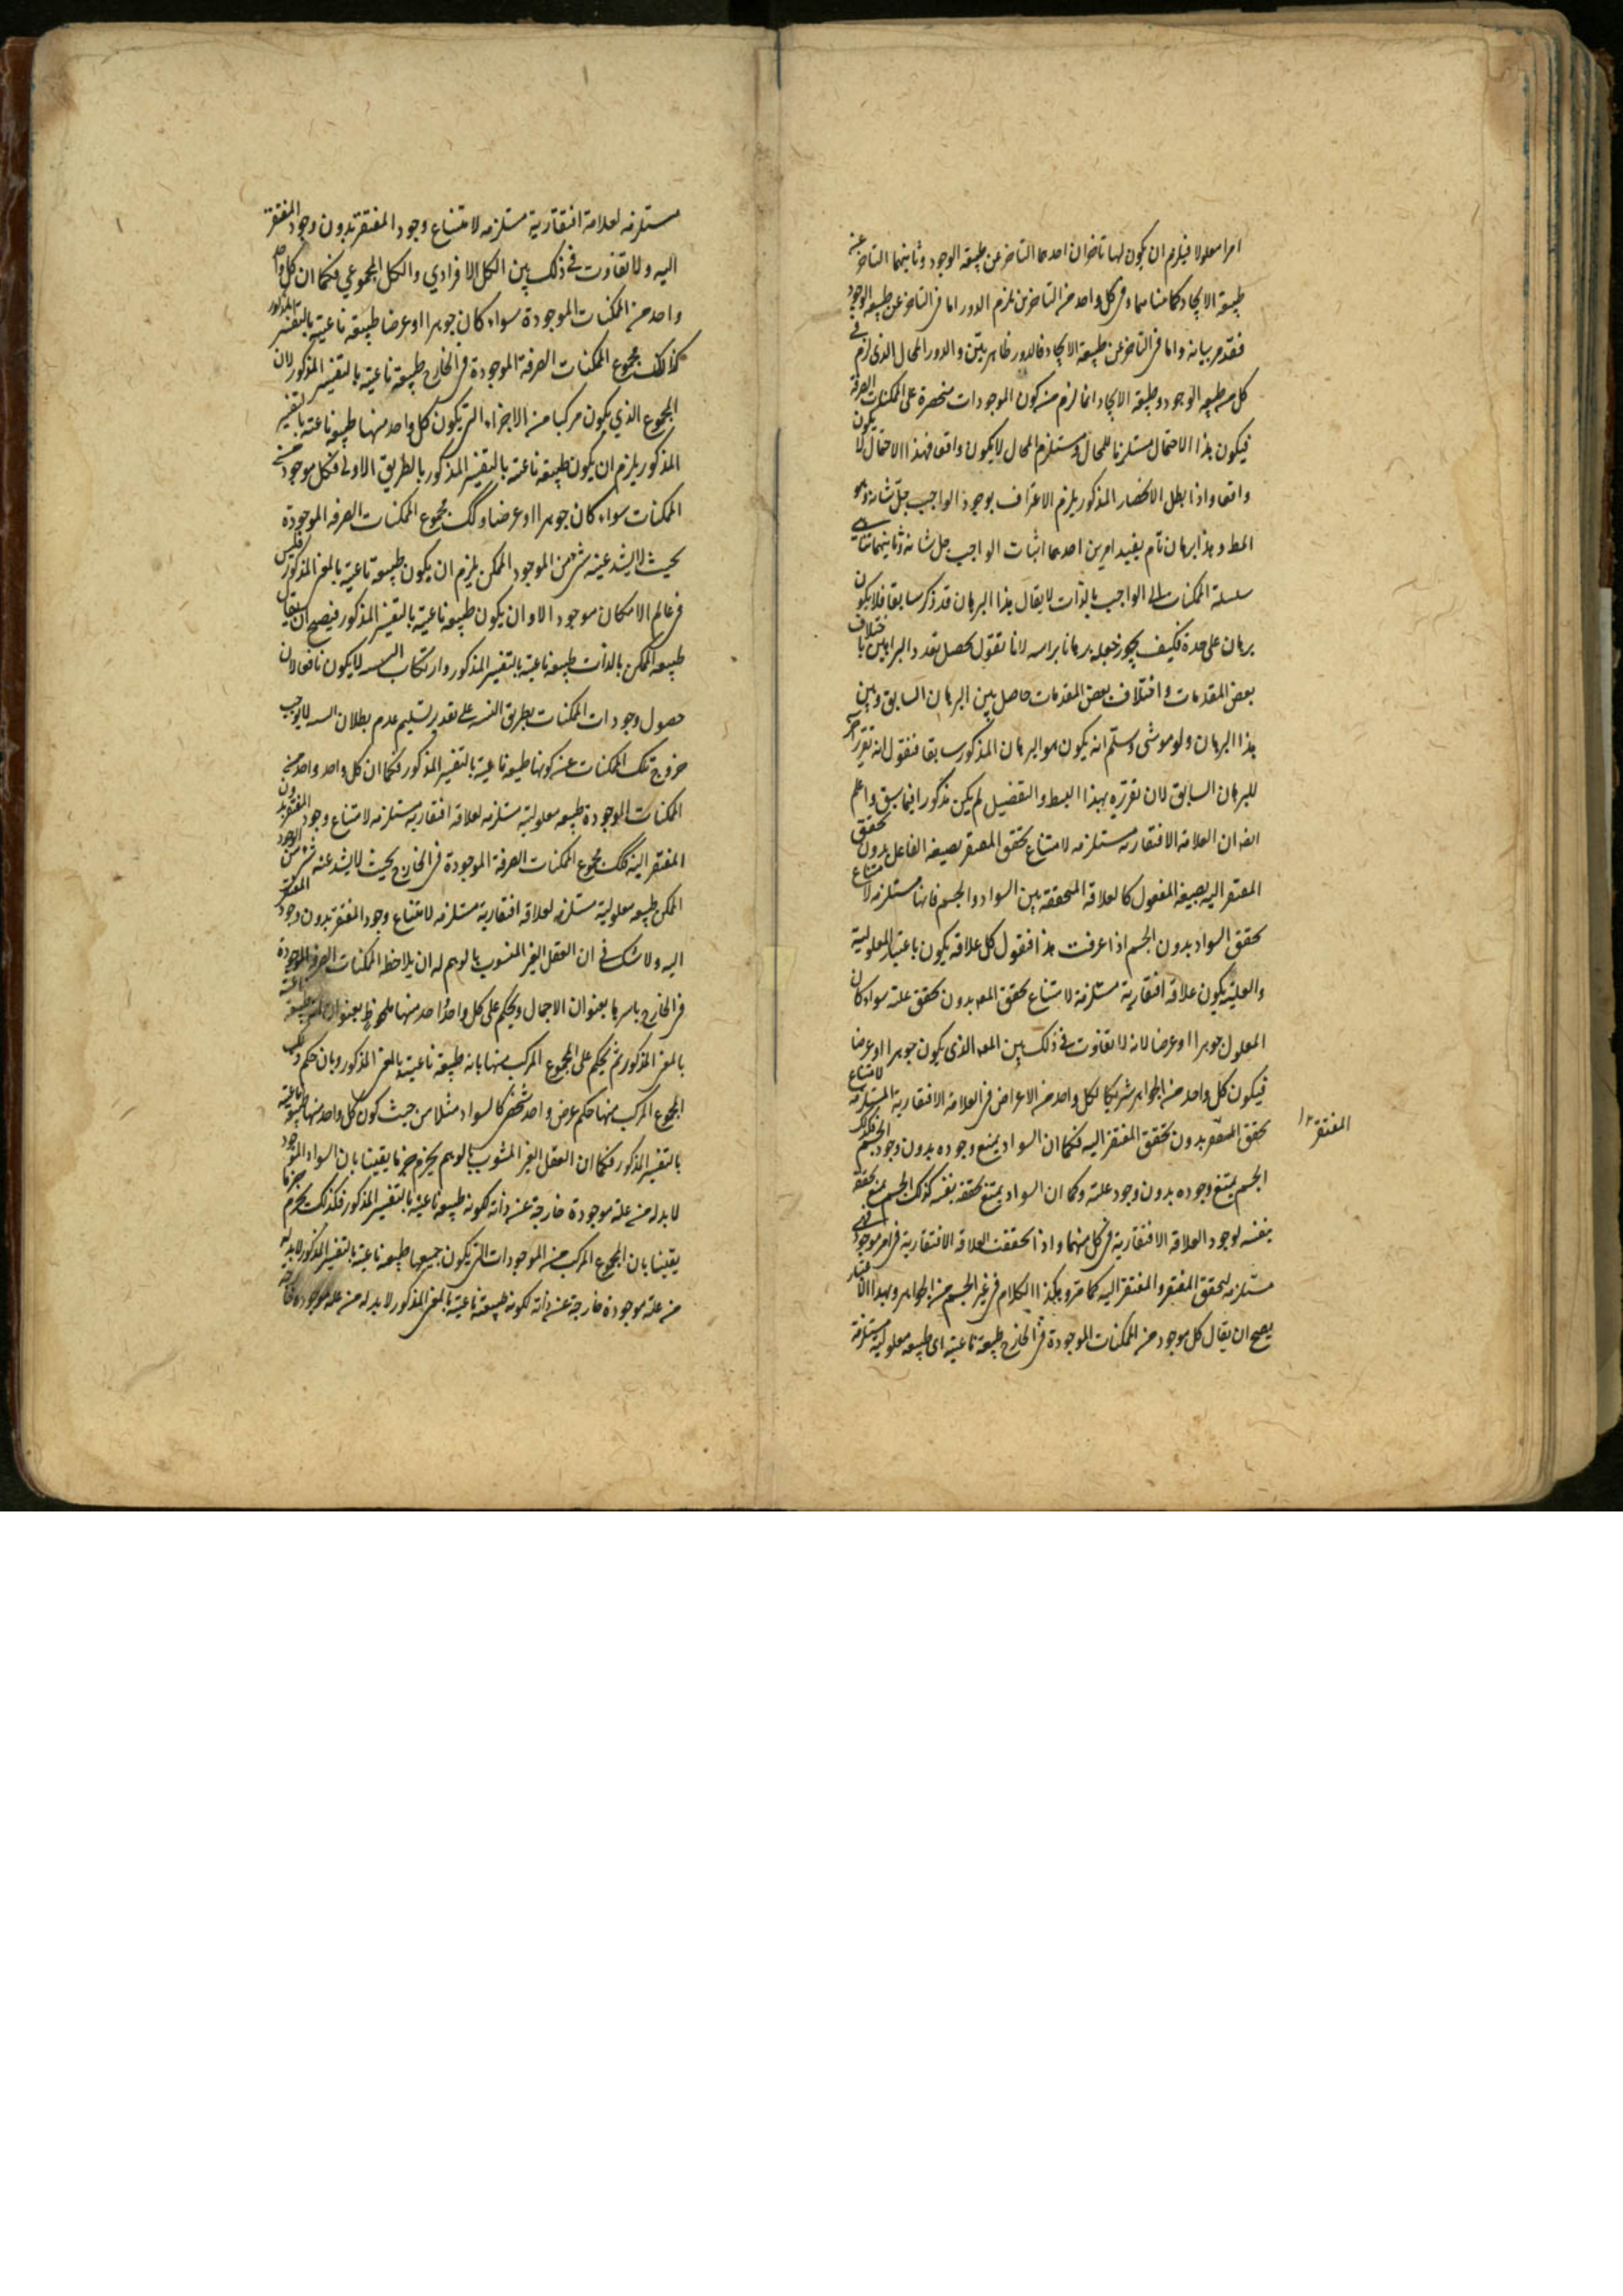 امرا معلولا فيلزم ان يكون لها تاخران احدهما التاخر عن طبيعة الوجود وثانيهما التاخر عن
طبيعة الايجاد كما مضاهما وفي كل واحد من التاخرين يلزم الدور اما في التاخر عن طبيعة الوجود
فقد مر بيانه واما في التاخر عن طبيعة الايجاد فالدور ظاهر بيّن والدور المحال الذي لزم في
كل من طبيعه الوجود وطبيعة الايجاد انما لزم من كون الموجودات منحصرة على الممكنات الصرفة
فيكون هذا الاحتمال مستلزما للمحال ومستلزم المحال لا يكون واقعا فهذا الاحتمال لا يكون
واقعا واذا بطل الانحصار المذكور يلزم الاعتراف بوجود الواجب جلّ شانه وهو
المط وهذا برهان تام يفيد امرين احدهما اثبات الواجب جل شانه وثانيهما تناهي
سلسلة الممكنات الى الواجب بالذات لا يقال هذا البرهان قد ذكر سابقا فلا يكون
برهان على حدة فكيف يجوز جعله برهانا براسه لانا نقول يحصل تعدد البراهين باختلاف
بعض المقدمات واختلاف بعض المقدمات حاصل بين البرهان السابق وبين
هذا البرهان ولو موشى وسلّم انه يكون هو البرهان المذكور سابقا فنقول انه تقرير آخر
للبرهان السابق لان تقريره بهذا البسط والتفصيل لم يكن مذكورا فيما سبق واعلم
ايضا ان العلاقة الافتقارية مستلزمه لامتناع تحقق المفتقر بصيغة الفاعل بدون تحقق
المفتقر اليه بصيغة المفعول كالعلاقه المتحققه بين السواد والجسم فانها مستلزمه لامتناع
تحقق السواد بدون الجسم اذا عرفت هذا فنقول كل علاقه يكون باعتبار المعلولية
والعلية يكون علاقه افتقارية مستلزمة لامتناع تحقق المعه بدون تحقق علته سواء كان
المعلول جوهرا او عرضا لانه لا تفاوت في ذلك بين المعه الذي يكون جوهرا او عرضا
فيكون كل واحد من الجواهر شريكا لكل واحد من الاعراض في العلاقة الافتقارية المستلزمه لامتناع
تحقق المفتقر بدون تحقق المفتقر اليه فكما ان السواد يمتنع وجوده بدون وجود الجسم فكذلك
المفتقر
الجسم يمتنع وجوده بدون وجود علته وكما ان السواد يمتنع تحققه بنفسه كذلك الجسم يمتنع تحققه
بنفسه لوجود العلاقه الافتقارية في كل منهما واذا تحققت العلاقه الافتقارية في امر موجود فهي
مستلزمه لتحقق المفتقر والمفتقر اليه كما مر وهكذا الكلام في غير الجسم من الجواهر وبهذا الاعتبار
يصح ان يقال كل موجود من الممكنات الموجودة في الخارج طبيعة ناعتية اي طبيعه معلولية مستلزمة
مستلزمه لعلاقة افتقارية مستلزمه لامتناع وجود المفتقر بدون وجود المفتقر
اليه ولا تفاوت في ذلك بين الكل الافرادي والكل المجموعي فكما ان كل واحد
واحد من الممكنات الموجودة سواء كان جوهرا او عرضا طبيعه ناعتية بالتفسير المذكور
كذلك مجموع الممكنات الصرفة الموجودة في الخارج طبيعة ناعتية بالتفسير المذكور لان
المجموع الذي يكون مركبا من الاجزاء التي يكون كل واحد منها طبيعه ناعتية بالتفسير
المذكور يلزم ان يكون طبيعه ناعتية بالتفسير المذكور بالطريق الاولى فكل موجود من
الممكنات سواء كان جوهرا او عرضا وكك مجموع الممكنات الصرفه الموجودة
بحيث لا يشذ عنه شئ من الموجود الممكن يلزم ان يكون طبيعة ناعتية بالمعنى المذكور فليس
في عالم الامكان موجود الا وان يكون طبيعه ناعتية بالتفسير المذكور فيصح ان يقال
طبيعه الممكن بالذات طبيعه ناعتية بالتفسير المذكور وارتكاب التسه لا يكون نافعا لان
حصول وجودات الممكنات بطريق التسه على تقدير تسليم عدم بطلان التسه لا يوجب
خروج تلك الممكنات عن كونها طبيعه ناعتية بالتفسير المذكور فكما ان كل واحد واحد من
الممكنات الموجودة طبيعه معلولية مستلزمه لعلاقه افتقارية مستلزمه لامتناع وجود المفتقر بدون
المفتقر اليه فكك مجموع الممكنات الصرفة الموجودة في الخارج بحيث لا يشذ عنه شئ من الموجود
الممكن طبيعه معلولية مستلزمه لعلاقه افتقارية مستلزمه لامتناع وجود المفتقر بدون وجود المفتقر
اليه ولا شك في ان العقل الغير المشوب بالوهم له ان يلاحظ الممكنات الصرفة الموجودة
في الخارج باسرها بعنوان الاجمال ويحكم على كل واحد واحد منها ملحوظ بعنوان انه طبيعه ناعتية
بالمعنى المذكور ثم يحكم على المجموع المركب منها بانه طبيعة ناعتية بالمعنى المذكور وبان حكم ذلك
المجموع المركب منها حكم عرض واحد شخصي كالسواد مثلا من حيث كون كل واحد منها طبيعة ناعتية
بالتفسير المذكور فكما ان العقل الغير المشوب بالوهم يجزم جزما يقينا بان السواد الموجود
لا بد له من علة موجودة خارجة عن ذاته لكونه طبيعه ناعتية بالتفسير المذكور فكذلك يجزم جزما
يقينا بان المجموع المركب من الموجودات التي يكون جميعها طبيعه ناعتية بالتفسير المذكور لا بد له
من علة موجودة خارجة عن ذاته لكونه طبيعة ناعتية بالمعنى المذكور لا بد له من علة موجوده خارجة